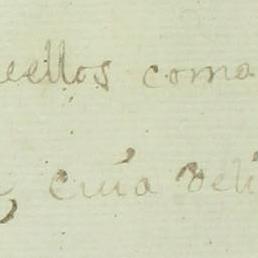 eellos coma
cuia deli